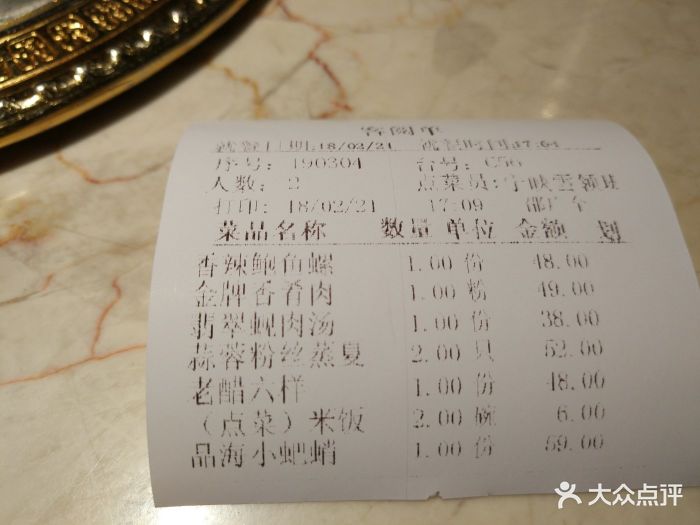 客阅单
就餐日期18/02/21 就餐时间17:04
序号: 190304 台号: C56
人数: 2 点菜员:宁映雲领班
打印: 18/02/21 17:09 部厂全
菜品名称 数量 单位 金额 划
香辣鲍鱼螺 1.00 份 48.00
金牌香肴肉 1.00 粉 49.00
翡翠蚬肉汤 1.00 份 38.00
蒜蓉粉丝蒸 2.00 只 52.00
老醋六样 1.00 份 48.00
（点菜）米饭 2.00 碗 6.00
品海小蚆蛸 1.00 份 59.00
大众点评